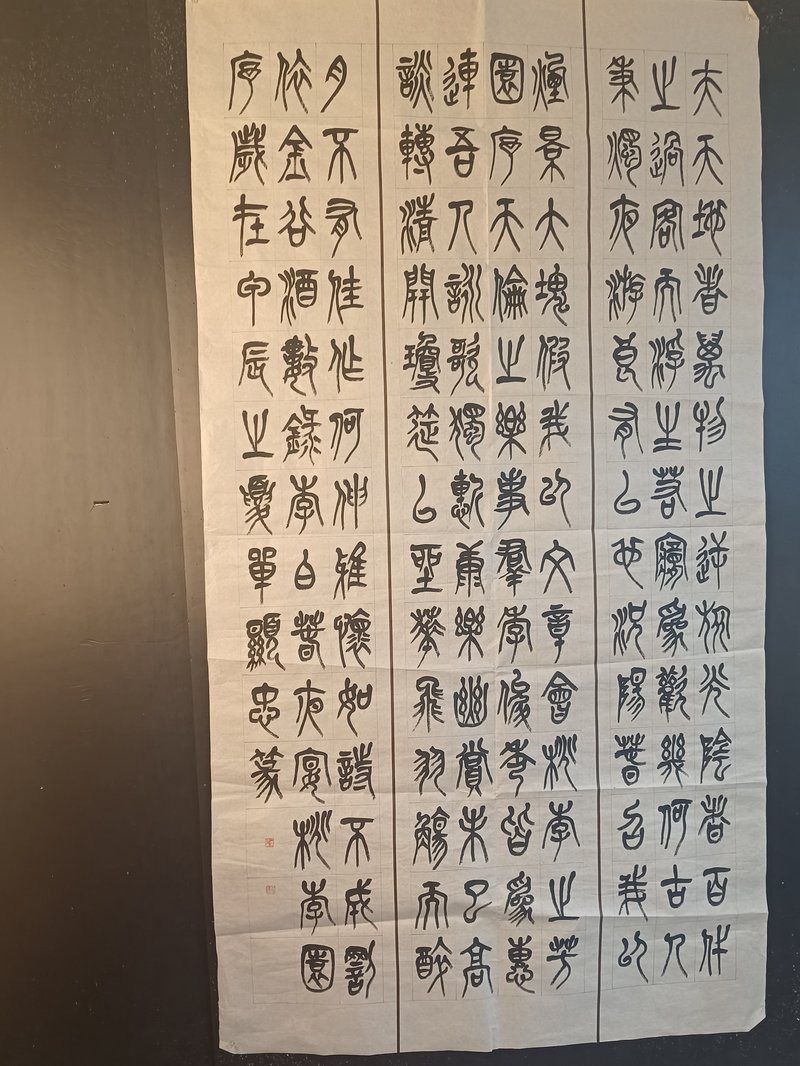 夫天地者萬物之逆旅光陰者百代
之過客而浮生若夢為歡幾何古人
秉燭夜游良有以也況陽春召我以
煙景大塊假我以文章會桃李之芳
園序天倫之樂事羣季俊秀皆為惠
連吾人詠歌獨慚康樂幽賞未已高
談轉清開瓊筵以坐華飛羽觴而醉
月不有佳作何伸雅懷如詩不成罰
依金谷酒數錄李白春夜宴桃李園
序歲在甲辰之夏單顯忠篆